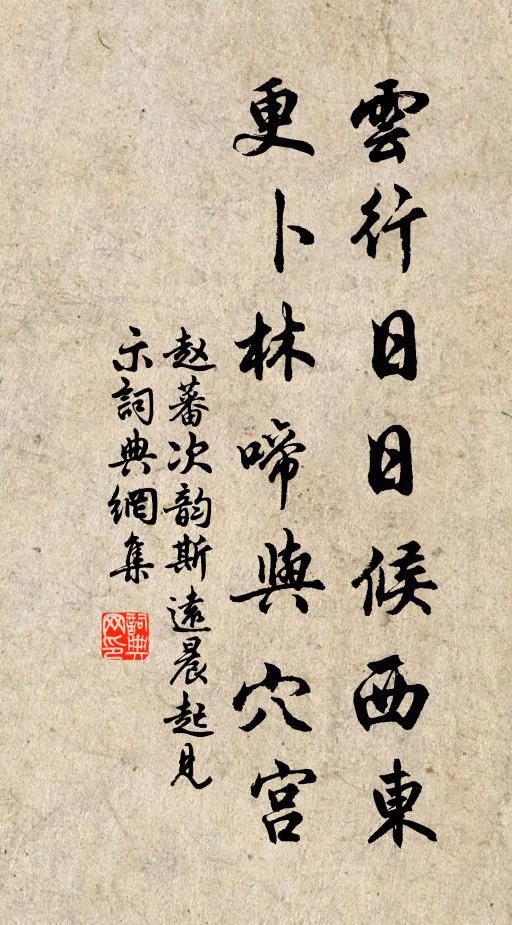 雲行日日候西東
更卜林啼與穴宮
赵蕃次韵斯遠晨起見
示詞典網集
詞典
网印